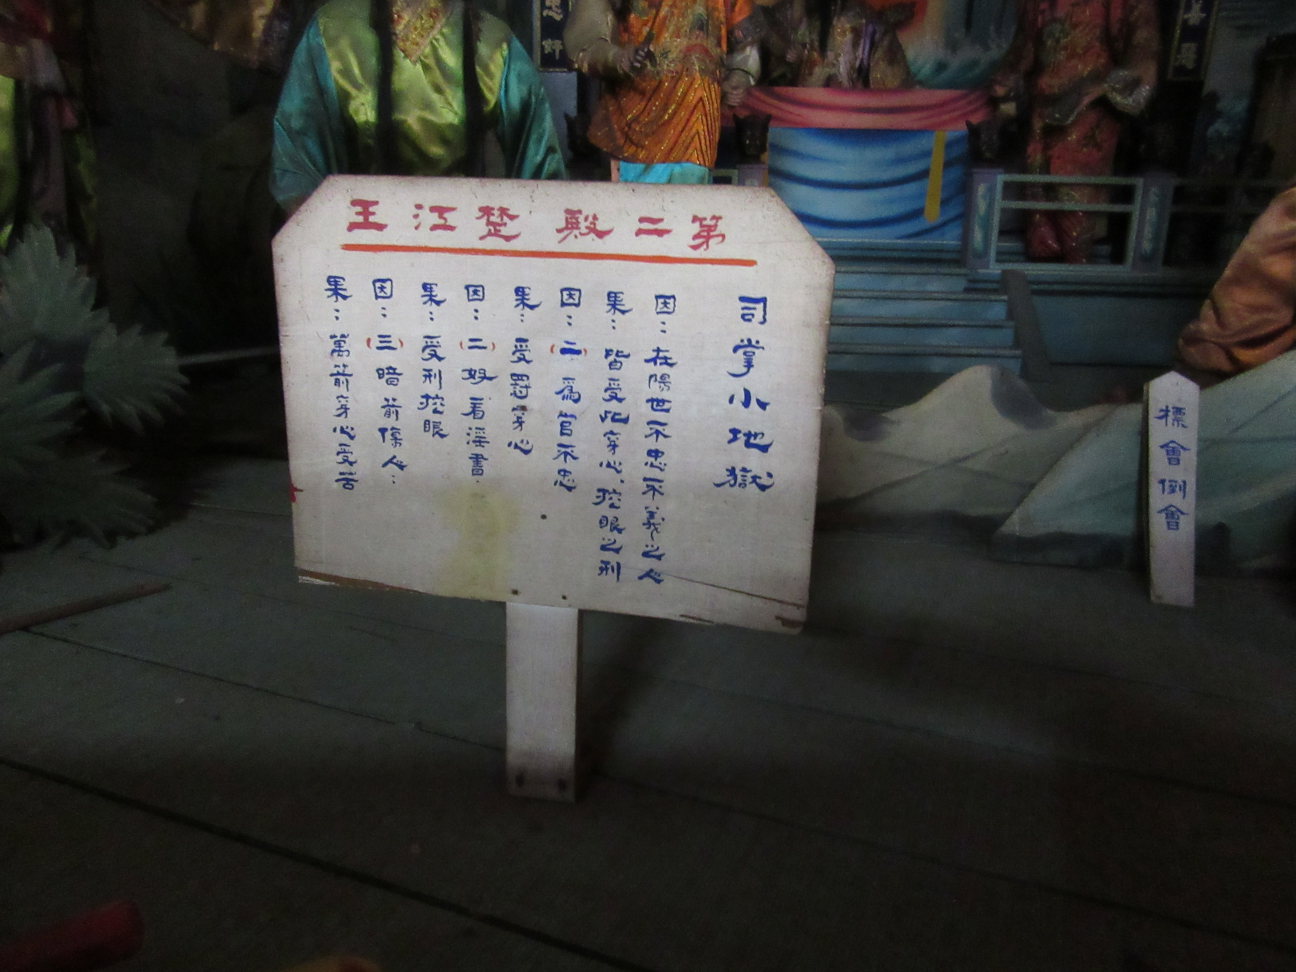 第二殿楚江王
司掌小地獄
因：在陽世不忠不義之人
果：皆受蛇穿心，挖眼之刑
因：(一)為官不忠
果：受冠穿心
因：(二)好看淫書
果：受刑挖眼
因：(三)暗箭傷人：
果：萬箭穿心受苦
標會倒會